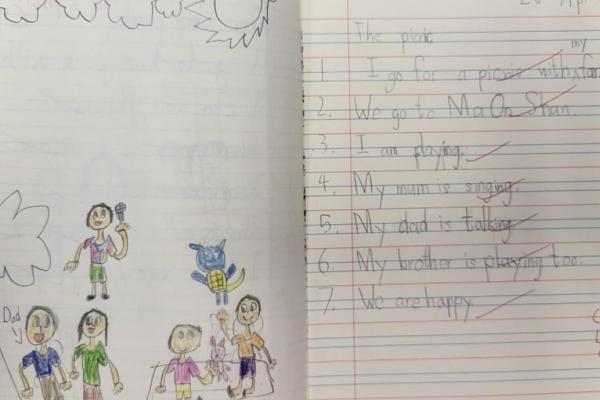 20 Apr
The picnic
my
1. I go for a picnic with ^ fam
2. We go to Ma On Shan.
3. I am playing.
4. My mum is singing.
5. My dad is talking
6. My brother is playing too.
7. We are happy
Dad